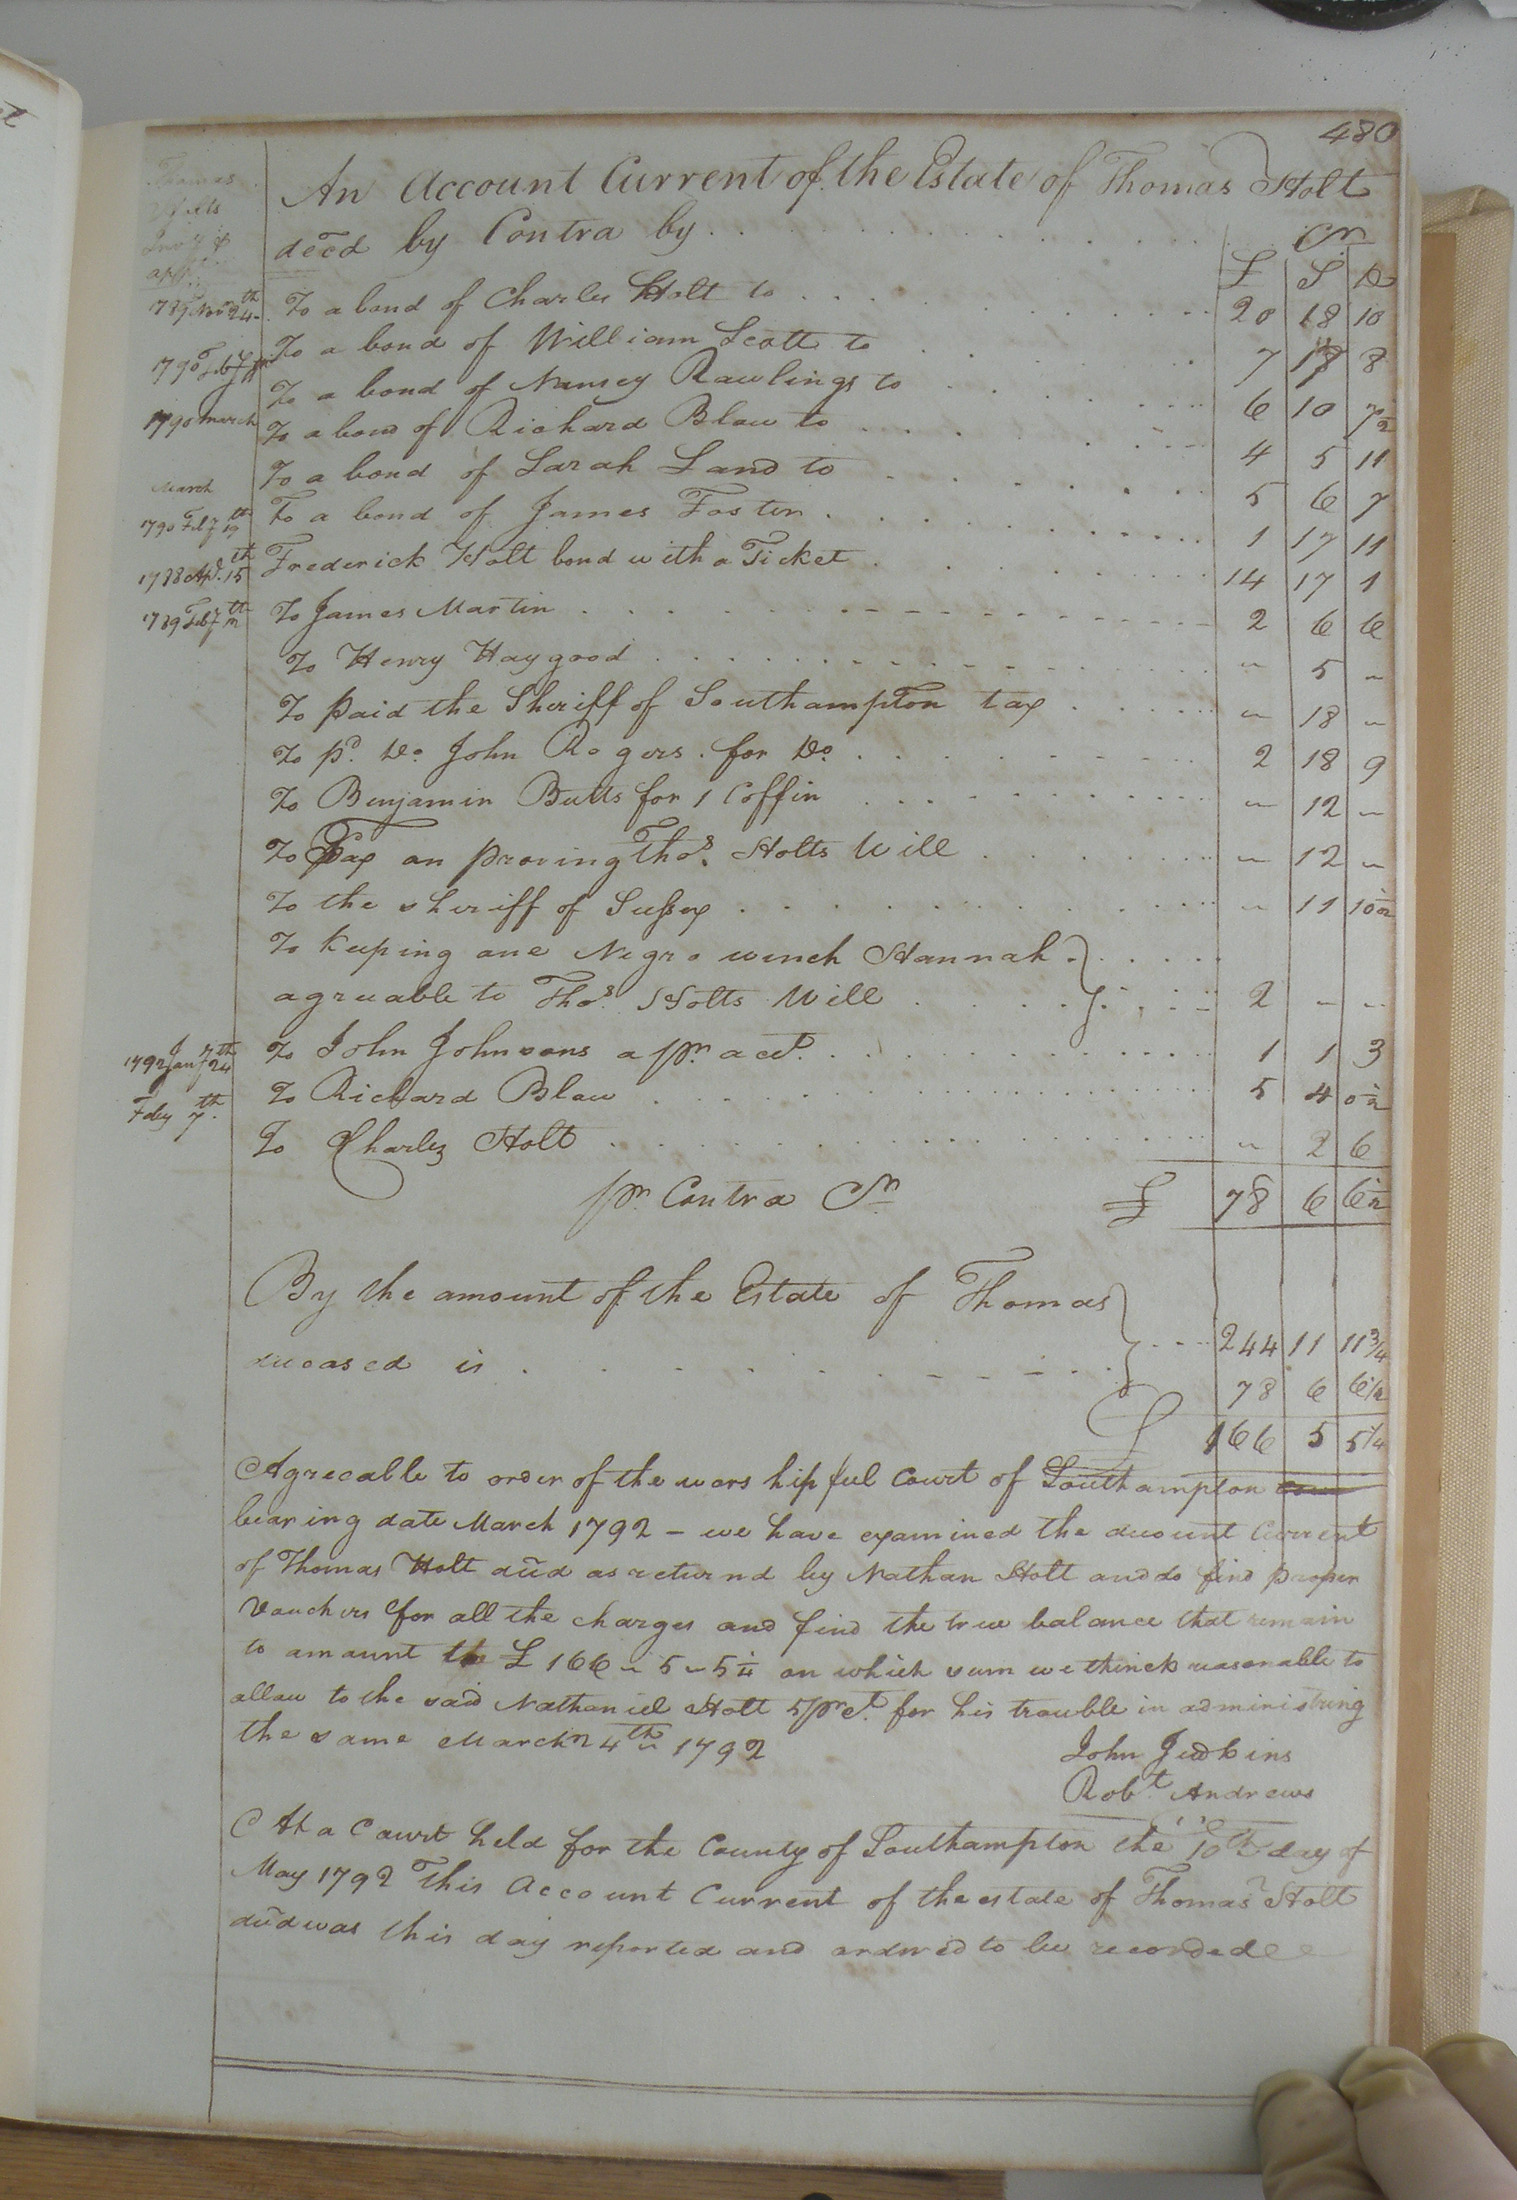 480
An Account Current of the Estate of Thomas Holt
decd by Contra by . . . Cr
Thomas
Holts
Invy &
appt
£ S D
1789 Novr 24th To a bond of Charles Holt to . . . 20 18 10
To a bond of William Scott to . . . 7 17 8
1790 Feby To a bond of Nansey Rawlings to . . . 6 10 7½
1790 march To a bond of Richard Blow to . . . 4 5 11
To a bond of Sarah Land to . . . 5 6 7
March
1790 Feby 19th To a bond of James Foster . . . 1 17 11
1788 Apl. 15th Frederick Holt bond with a Ticket . . . 14 17 1
1789 Feby th To James Martin . . . 2 6 6
To Henry Haygood . . . ~ 5 ~
To paid the Sheriff of Southampton tax . . . ~ 18 ~
To pd. Do. John Rogers. for Do. . . . 2 18 9
To Benjamin Butts for 1 Coffin . . . ~ 12 ~
To Tax on proving Thos. Holts Will . . . ~ 12 ~
To the sheriff of Sussex . . . ~ 11 10½
To keeping one Negro wench Hannah } . . .
agreuable to Thos. Holts Will . . . 2 ~ ~
1792 Jany 24th To John Johnsons a pr. acct. . . . 1 1 3
Feby 7th. To Richard Blow . . . 5 4 0½
To Charles Holt . . . ~ 2 6
pr. Contra Cr £ 78 6 6½
By the amount of the Estate of Thomas }
deceased is . . . 244 11 11¾
78 6 6½
£ 166 5 5¼
Agrecable to order of the worshipful Court of Southampton
bearing date March 1792 – we have examined the account Current
of Thomas Holt decd as returnd by Nathan Holt and do find proper
Vouchers for all the charges and find the true balance that remain
to amount to £ 166 ~ 5 ~ 5¼ on which sum we thinck reasonable to
allow to the said Nathaniel Holt 5 pr Ct. for his trouble in administring
the same March 24th ~ 1792
John Judkins
Robt. Andrews
At a Court held for the County of Southampton the 10th day of
May 1792 This Account Current of the estate of Thomas Holt
decd was this day reported and ordered to be recorded